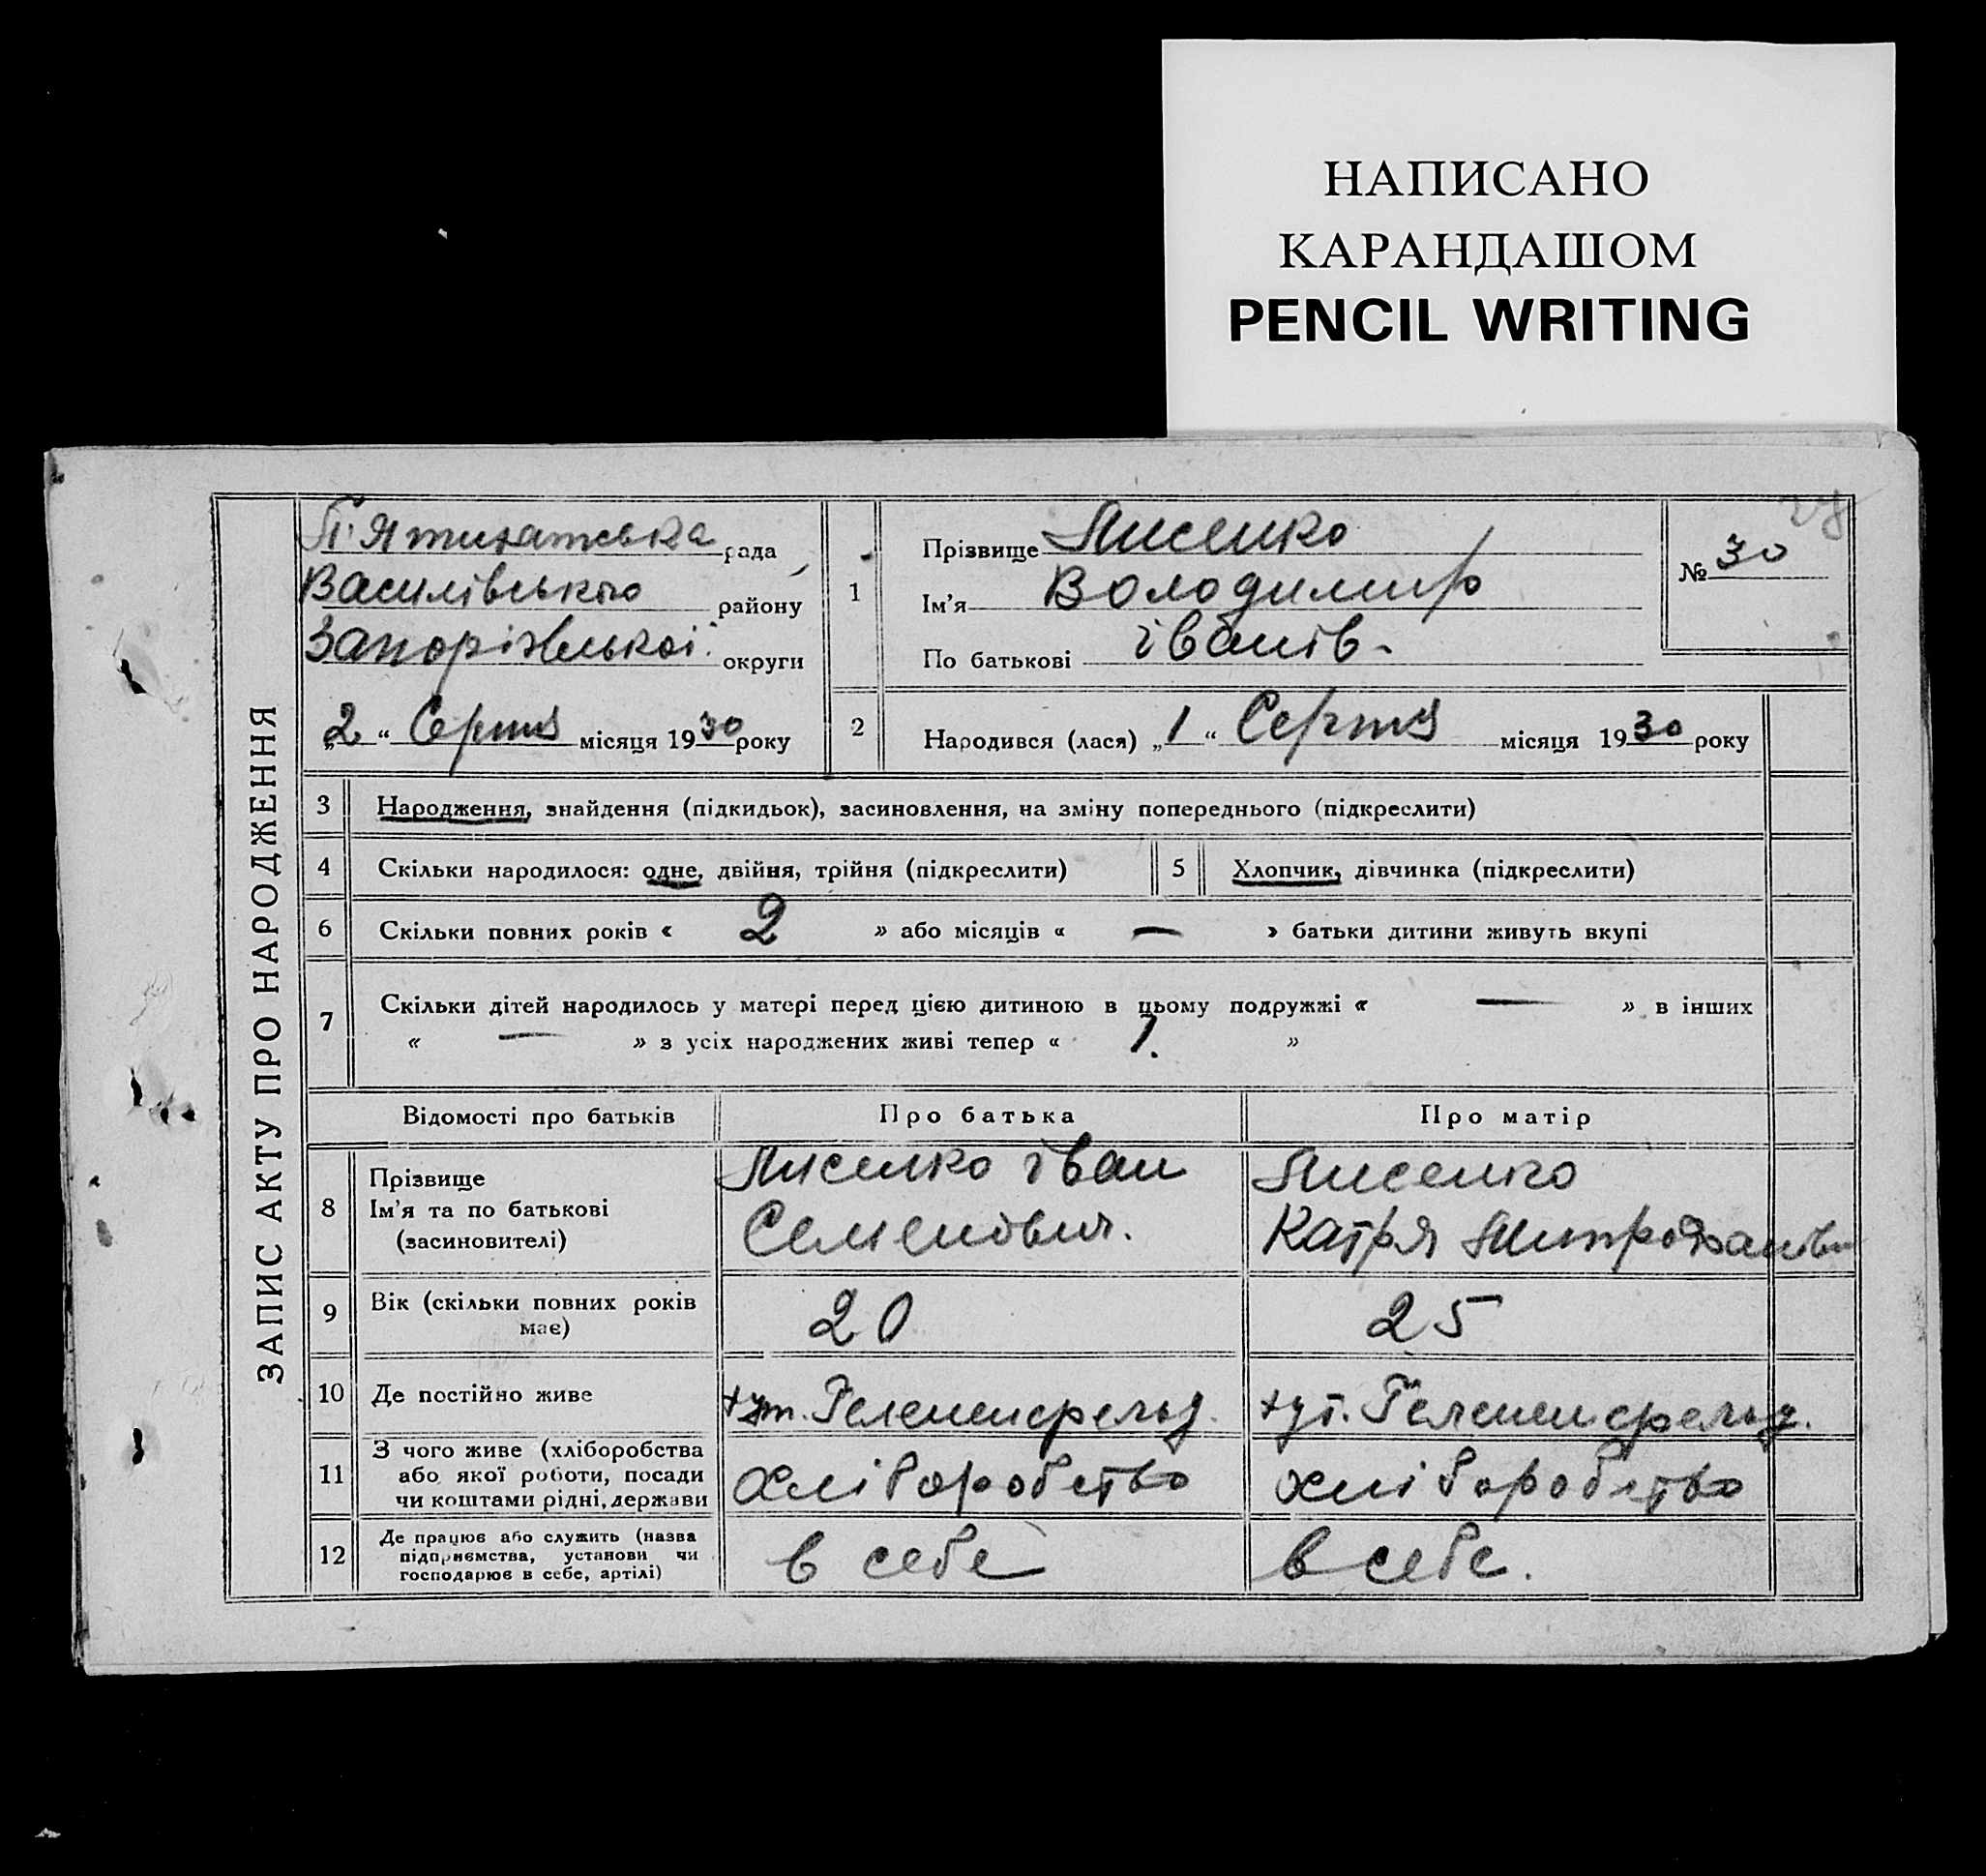 НАПИСАНО
КАРАНДАШОМ
PENCIL WRITING
ЗАПИС АКТУ ПРО НАРОДЖЕННЯ
П'ятихатська рада
Василівського району
Запоріжської округи
„2“ Серпня місяця 1930 року
1 Прізвище Лисенко
Ім'я Володимир
По батькові Іванів-
№ 30
28
2 Народився (лася) „1“ Серпня місяця 1930 року
3 Народження, знайдення (підкидьок), засиновлення, на зміну попереднього (підкреслити)
4 Скільки народилося: одне, двійня, трійня (підкреслити) 5 Хлопчик, дівчинка (підкреслити)
6 Скільки повних років « 2 » або місяців « — » батьки дитини живуть вкупі
7 Скільки дітей народилось у матері перед цією дитиною в цьому подружжі « — » в інших
« — » з усіх народжених живі тепер « 1. »
Відомості про батьків Про батька Про матір
8 Прізвище
Ім'я та по батькові
(засиновителі)
Лисенко Іван
Семенович.
Лисенко
Катря Митрофанівн
9 Вік (скільки повних років
має)
20
25
10 Де постійно живе
хут. Геленсфельд.
хут. Геленсфельд.
11 З чого живе (хліборобства
або якої роботи, посади
чи коштами рідні, держави
хліборобство
хліборобство
12 Де працює або служить (назва
підприємства, установи чи
господарює в себе, артілі)
в себе
в себе.